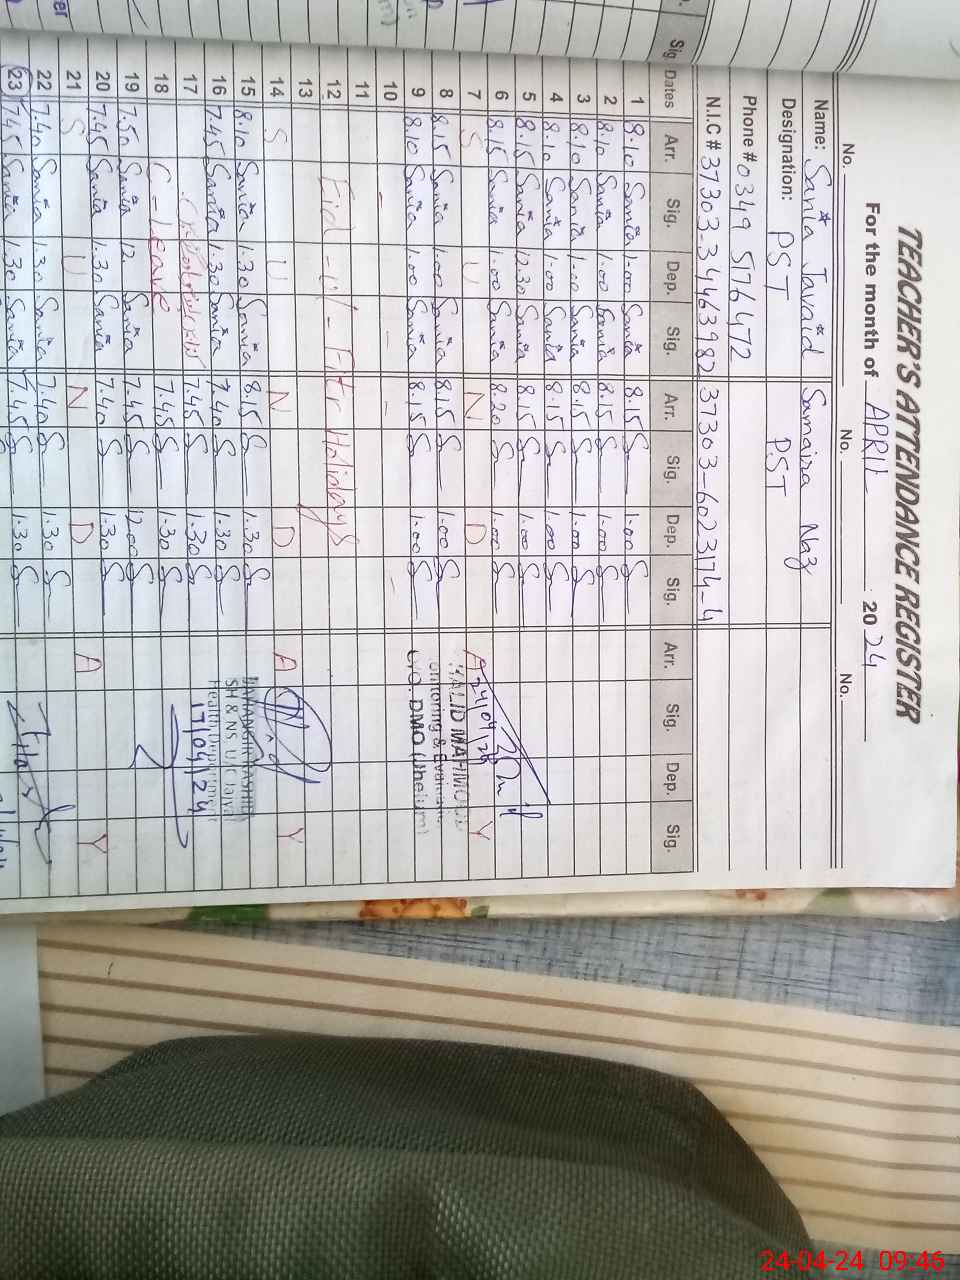 TEACHER'S ATTENDANCE REGISTER
For the month of APRIL 2024
No. No. No.
Name: Sania Javaid Sumaira Naz
Designation: PST PST
Phone # 0349 5176472
N.I.C # 37303-34463982 37303-6023174-4
Sig. Dates Arr. Sig. Dep. Sig. Arr. Sig. Dep. Sig. Arr. Sig. Dep. Sig.
1 8.10 Sania 1.00 Sania 8.15 1.00
2 8.10 Sania 1.00 Sania 8.15 1.00
3 8.10 Sania 1.00 Sania 8.15 1.00
4 8.10 Sania 1.00 Sania 8.15 1.00
5 8.15 Sania 12.30 Sania 8.15 1.00
6 8.15 Sania 1.00 Sania 8.20 1.00
7 S U N D A Y
8 8.15 Sania 1.00 Sania 8.15 1.00
9 8.10 Sania 1.00 Sania 8.15 1.00
10
11
12 Eid-ul-Fitr Holidays
13
14 S U N D A Y
15 8.10 Sania 1.30 Sania 8.15 1.30
16 7.45 Sania 1.30 Sania 7.40 1.30
17 7.45 1.30
18 C-Leave 7.45 1.30
19 7.50 Sania 12. Sania 7.45 12.00
20 7.45 Sania 1.30 Sania 7.40 1.30
21 S U N D A Y
22 7.40 Sania 1.30 Sania 7.40 1.30
23 7.45 Sania 1.30 Sania 7.45 1.30
24/04/24
KHALID MAHMOOD
Monitoring & Evaluation
O/O. DMO (Jhelum)
SH & NS. U/C
Health Department
17/04/24
24-04-24 09:46